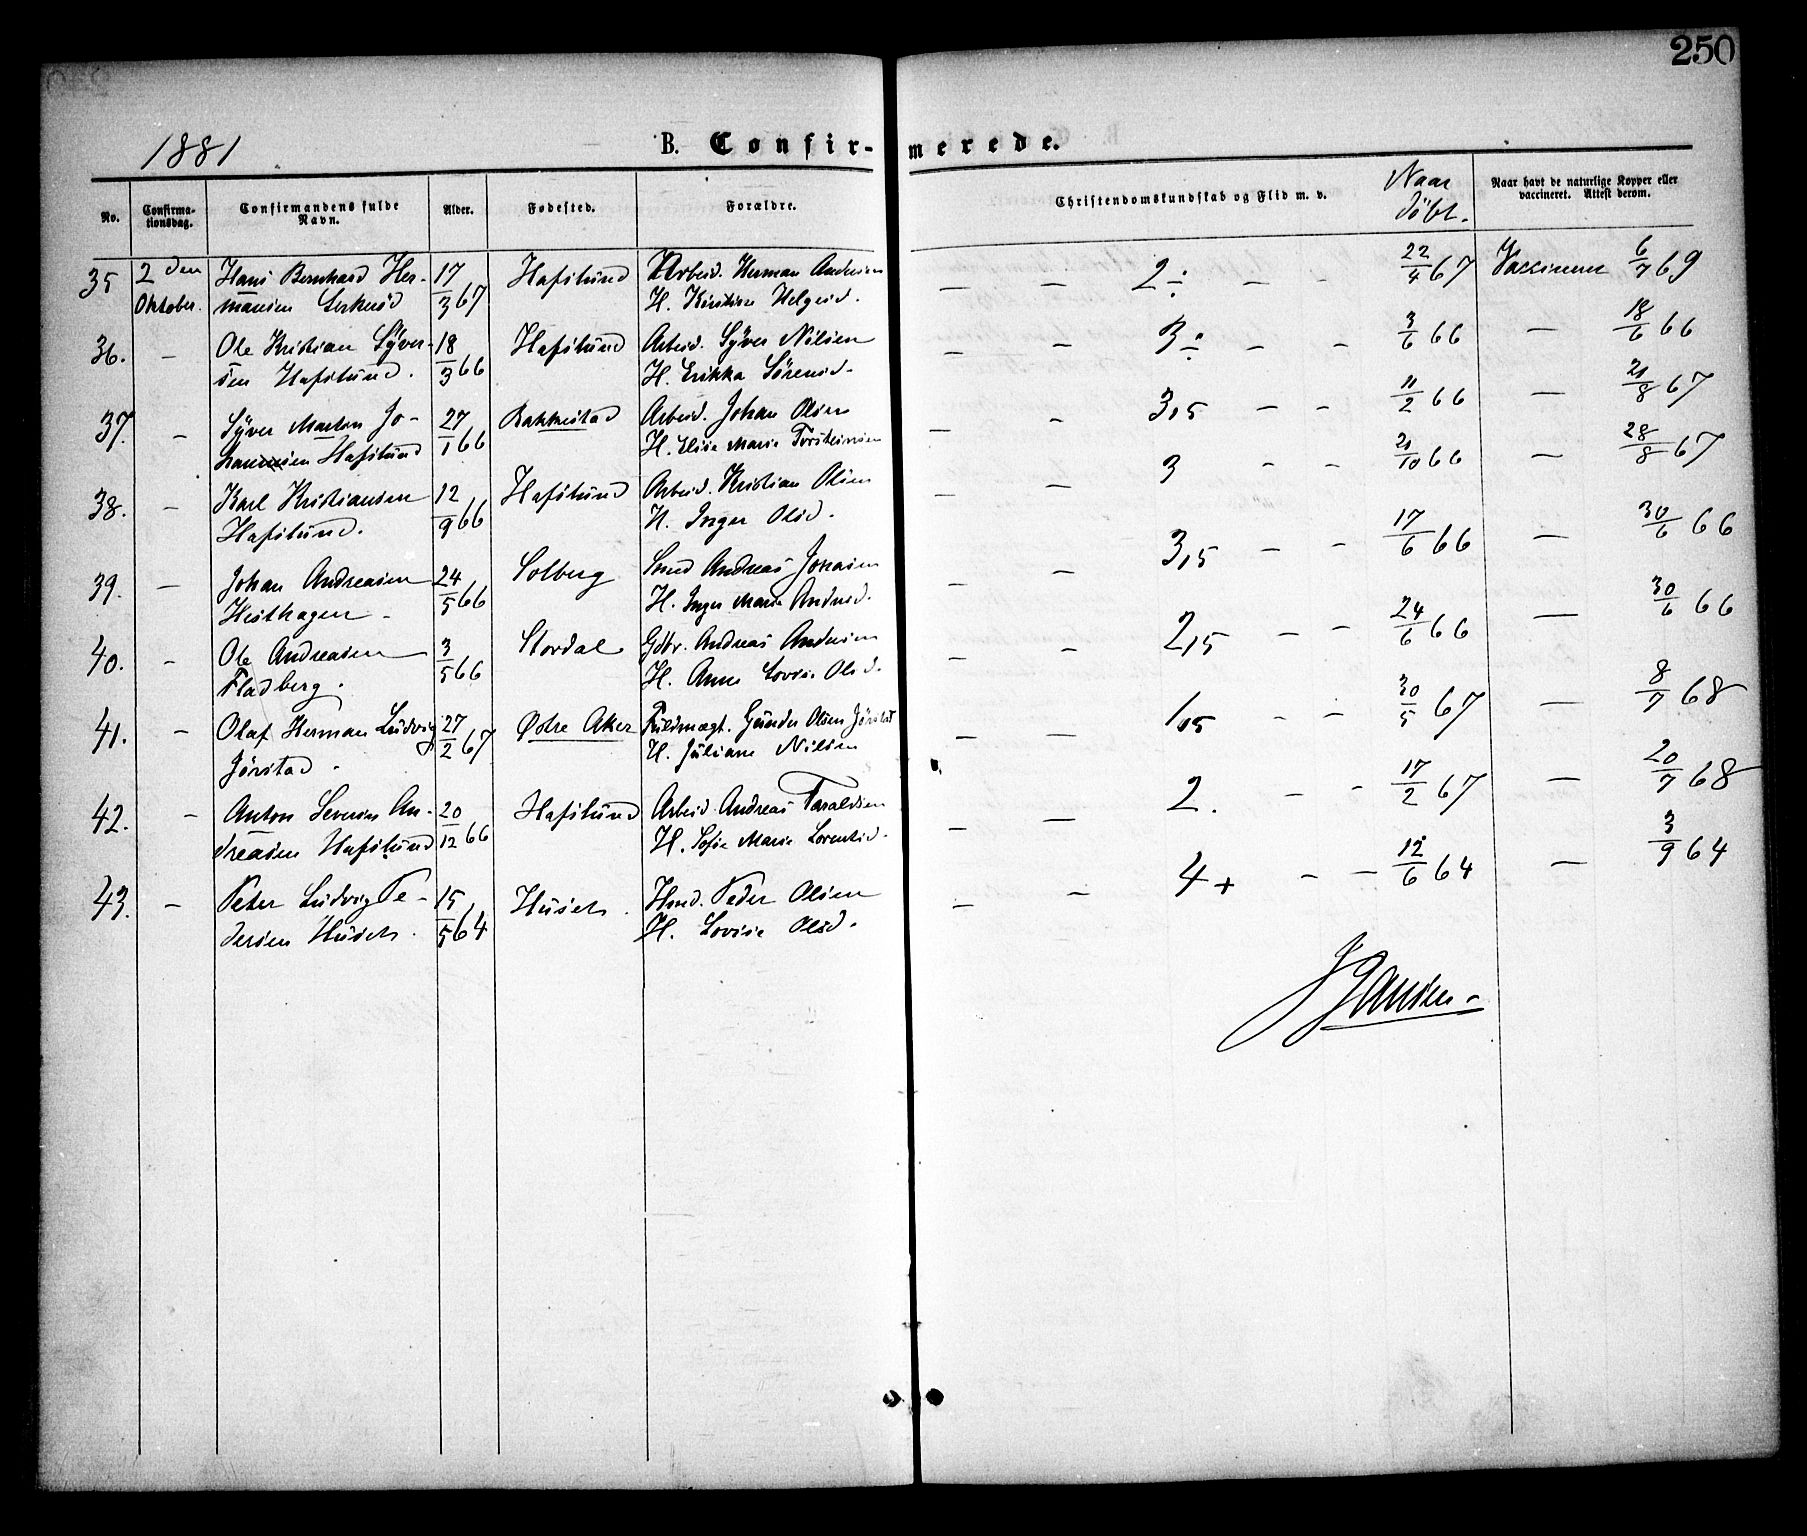 250
1881
B. Confir- merede.
No. Confirma-tionsdag. Confirmandens fulde Navn. Alder. Fødested. Forældre. Christendomskundskab og Flid m. v. Naar døbt. Naar havt de naturlige Kopper eller vaccineret. Attest derom.
35 2den Hans Bernhard Her- 17/3 67 Hafslund Arbeid. Herman Andersen — — 2÷ — - 22/4 67 Vaccineret 6/7 69
Oktober. mansen H. Kirstine Helgesd.
36. — Ole Kristian Syver- 18/3 66 Hafslund Arbeid. Syver Nilsen — — 3÷ — - 3/6 66 — 18/6 66
sen Hafslund. H. Erikka Sörensd.
37. — Syver Marton Jo- 27/1 66 Bakkestad Arbeid. Johan Olsen — — 3,5 — - 11/2 66 — 21/8 67
hannsen Hafslund H. Elise Marie Torsteinsen
38. — Karl Kristiansen 12/9 66 Hafslund Arbeid. Kristian Olsen — — 3 - - 21/10 66 — 28/8 67
Hafslund. H. Inger Olsd.
39. — Johan Andreasen 24/5 66 Solberg Smed Andreas Jonasen — — 3,5 — - 17/6 66 — 30/6 66
Hesthagen - H. Inger Marie Andersd.
40. - Ole Andreasen 3/5 66 Stordal Gdbr. Andreas Andersen — — 2,5 — - 24/6 66 — 30/6 66
Fladberg. H. Anne Lovise Olsd.
41. - Olaf Herman Ludvig 27/2 67 Østre Aker Fuldmægt. Gunder Olsen Jörstad — — 1,5 - - 30/5 67 — 8/7 68
Jörstad. H. Juliane Nilsen
42. - Anton Severin An- 20/12 66 Hafslund Arbeid. Andreas Taraldsen — — 2. - - 17/2 67 — 20/7 68
dreasen Hafslund H. Sofie Marie Lorentsd.
43. — Peter Ludvig Pe- 15/5 64 Huseth. Hmd. Peder Olsen — — 4+ - — 12/6 64 — 3/9 64
dersen Huseth. H. Lovise Olsd.